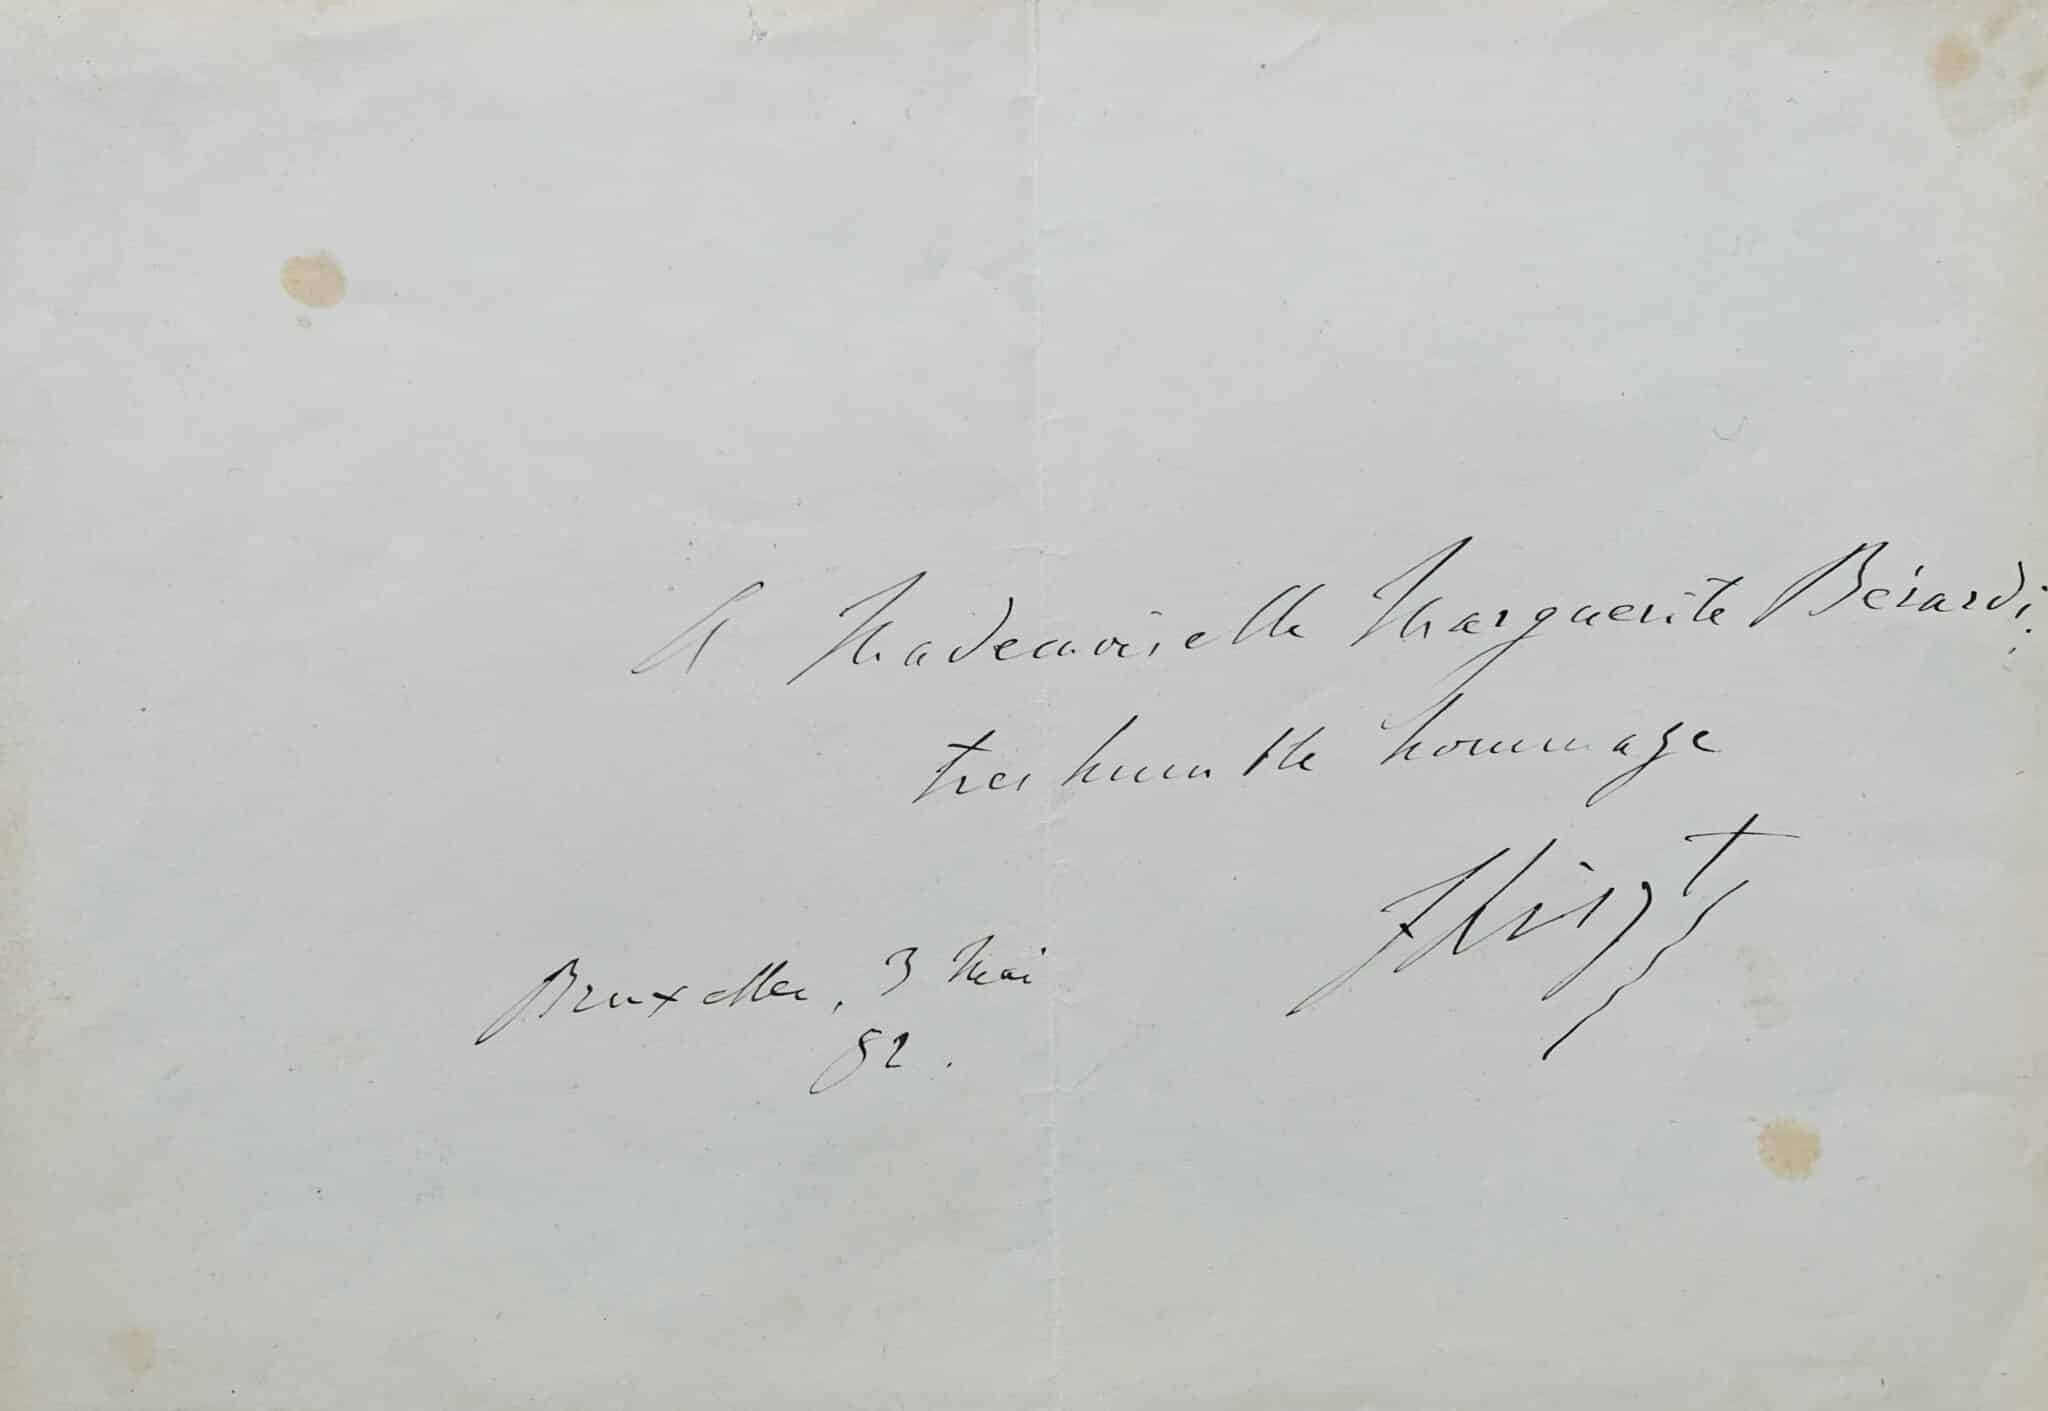 A Mademoiselle Marguerite Bérardi,
tres humble hommage
FLiszt
Bruxelles, 3 Mai
82.